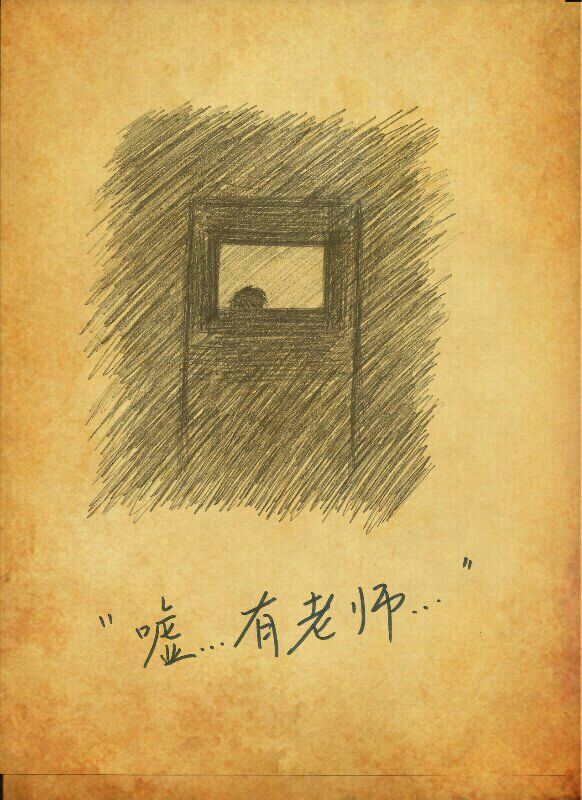 "嘘...有老师..."